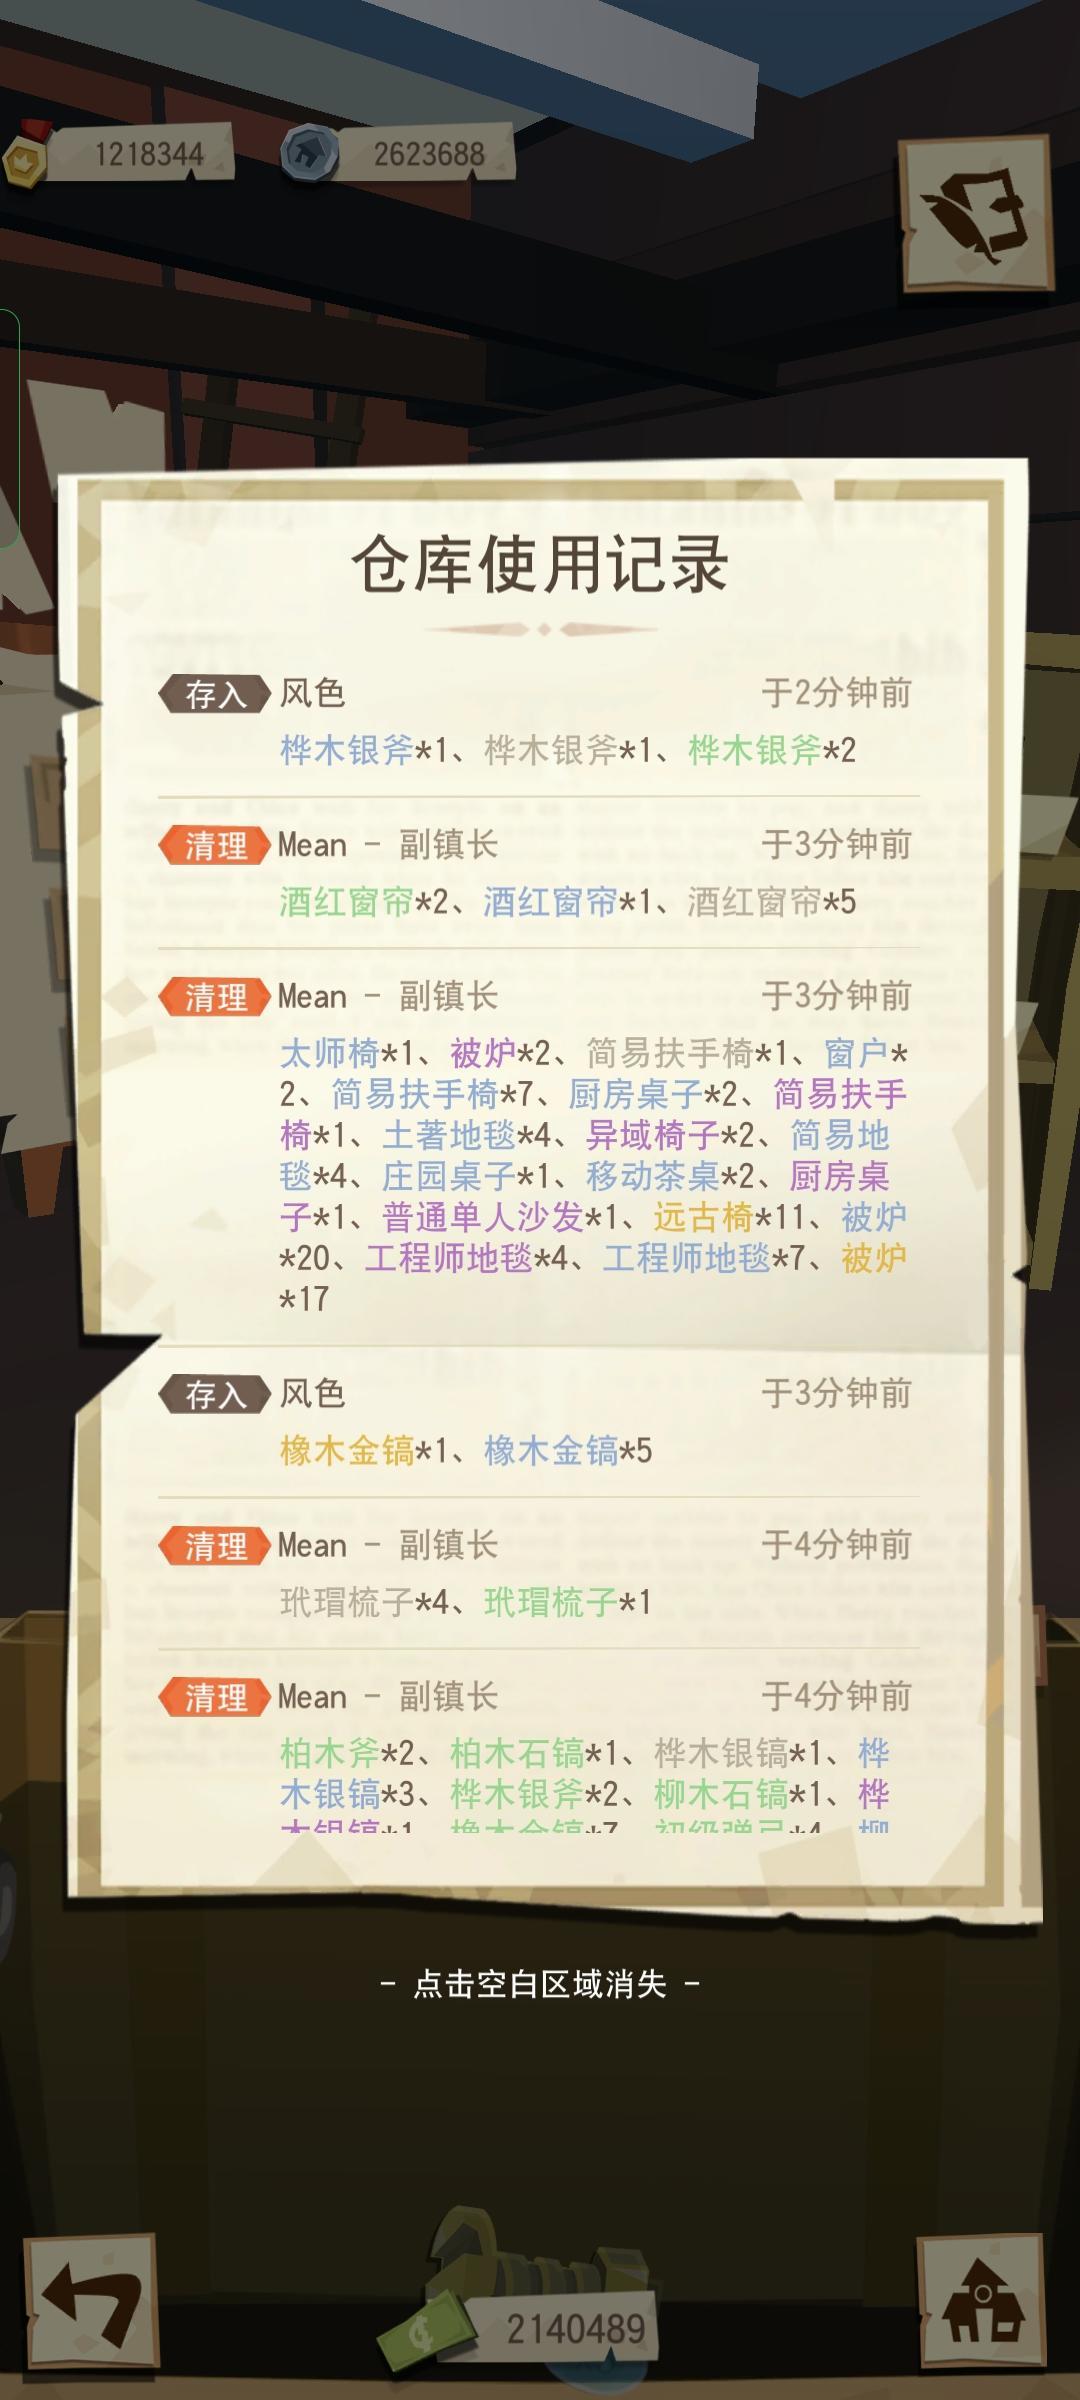 1218344
2623688
仓库使用记录
存入 风色 于2分钟前
桦木银斧*1、桦木银斧*1、桦木银斧*2
清理 Mean - 副镇长 于3分钟前
酒红窗帘*2、酒红窗帘*1、酒红窗帘*5
清理 Mean - 副镇长 于3分钟前
太师椅*1、被炉*2、简易扶手椅*1、窗户*
2、简易扶手椅*7、厨房桌子*2、简易扶手
椅*1、土著地毯*4、异域椅子*2、简易地
毯*4、庄园桌子*1、移动茶桌*2、厨房桌
子*1、普通单人沙发*1、远古椅*11、被炉
*20、工程师地毯*4、工程师地毯*7、被炉
*17
存入 风色 于3分钟前
橡木金镐*1、橡木金镐*5
清理 Mean - 副镇长 于4分钟前
玳瑁梳子*4、玳瑁梳子*1
清理 Mean - 副镇长 于4分钟前
柏木斧*2、柏木石镐*1、桦木银镐*1、桦
木银镐*3、桦木银斧*2、柳木石镐*1、桦
木银镐*1、橡木金镐*7、初级弹弓*4、柳
- 点击空白区域消失 -
2140489